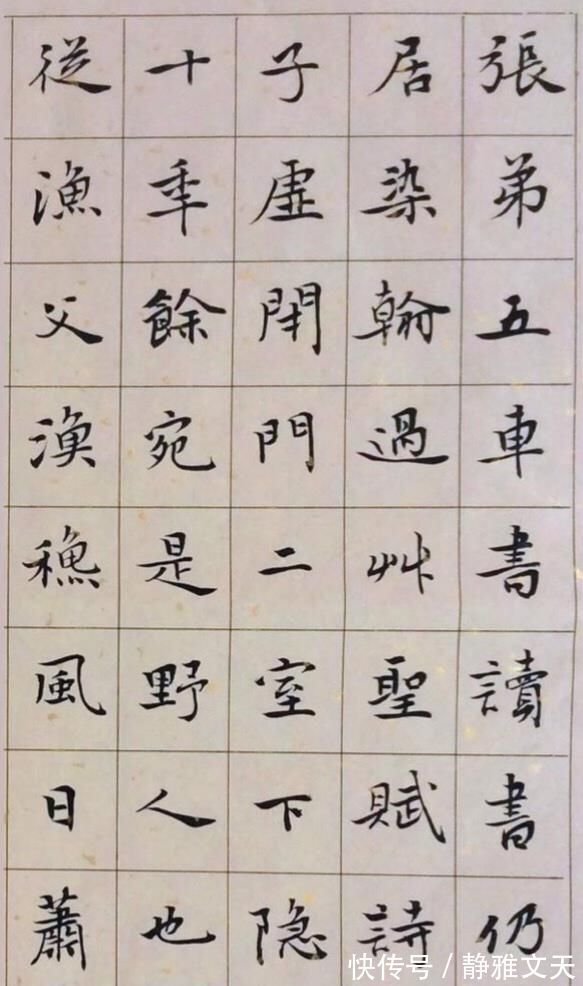 張弟五車書讀書仍
居染翰過艸聖賦詩
子虛閇門二室下隐
十年餘宛是野人也
從漁父漁穐風日蕭
快传号 / 静雅文天